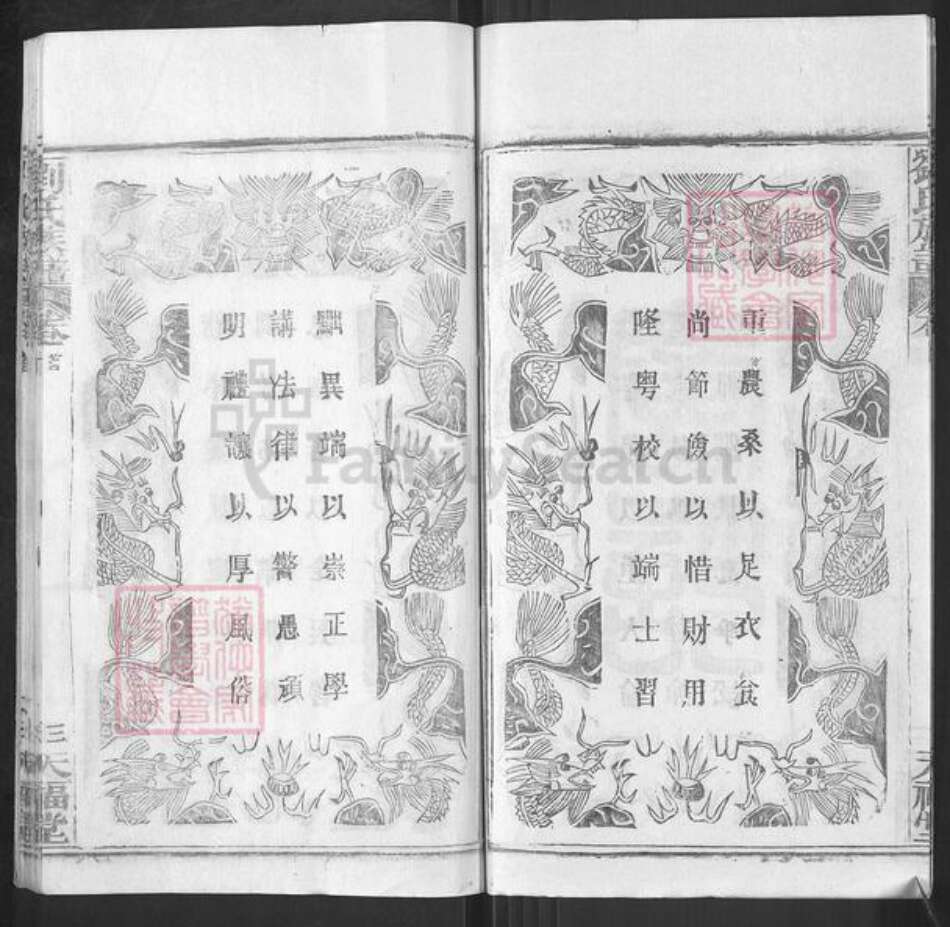 重農桑以足衣食
尚節儉以惜財用
隆粤校以端士習
黜異端以崇正學
講法律以警愚頑
明禮讓以厚風俗
劉氏族譜
卷首
三
六福堂
FamilySearch